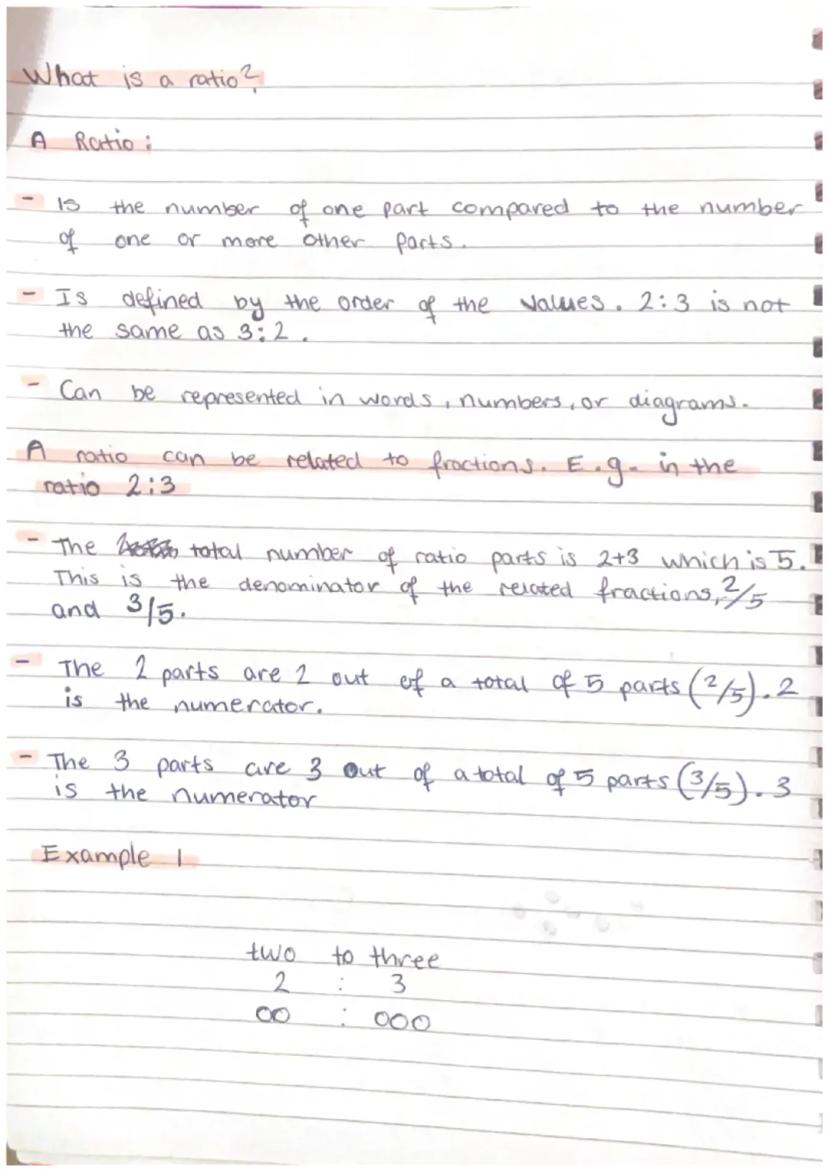 What is a ratio?
A Ratio:
- Is the number of one part compared to the number
of one or more other parts.
- Is defined by the order of the values. 2:3 is not
the same as 3:2.
- Can be represented in words, numbers, or diagrams.
A ratio can be related to fractions. E.g. in the
ratio 2:3
- The total number of ratio parts is 2+3 which is 5.
This is the denominator of the related fractions, 2/5
and 3/5.
- The 2 parts are 2 out of a total of 5 parts (2/5). 2
is the numerator.
- The 3 parts are 3 out of a total of 5 parts (3/5). 3
is the numerator
Example 1
two to three
2 : 3
OO : OOO